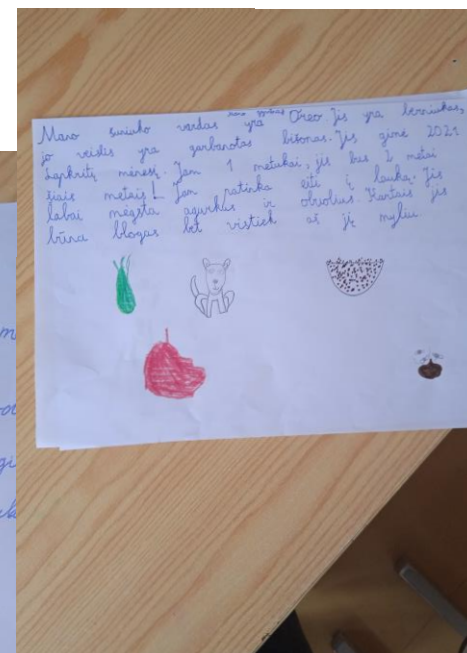 Mano šuniuko vardas yra Oreo. Jis yra berniukas,
jo veislis yra garbanotas bišonas. Jis gimė 2021
Lapkritį mėnesį. Jam 1 metukai, jis bus 2 metai
šiais metais! Jam patinka eiti į lauką. Jis
labai mėgsta agurkus ir obuolius. Kartais jis
būna blogas bet vistiek aš jį myliu.